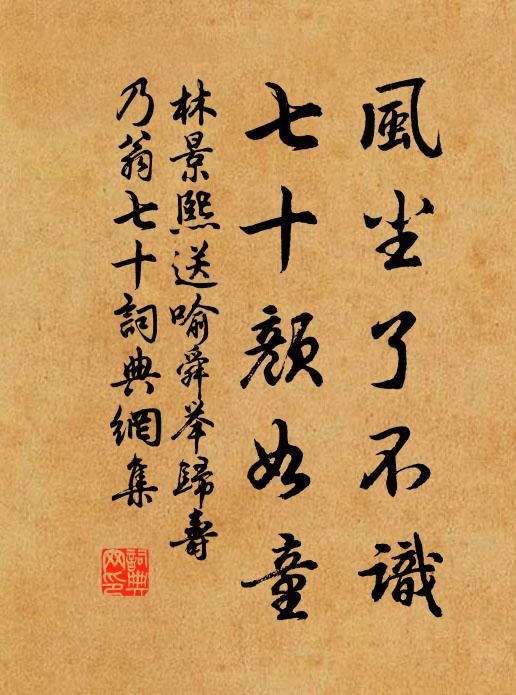 風尘了不識
七十顏如童
林景熙送喻舜举歸壽
乃翁七十詞典網集
詞典網印